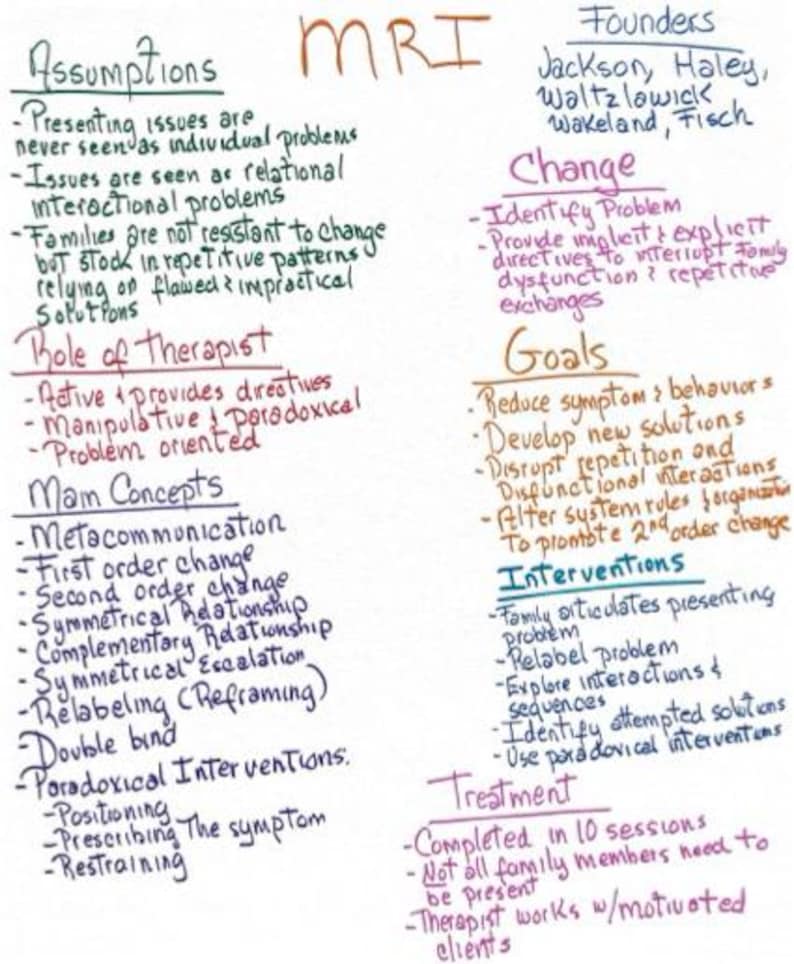 MRI
Assumptions
- Presenting issues are
never seen as individual problems
- Issues are seen as relational
interactional problems
- Families are not resistant to change
but stock in repetitive patterns
relying on flawed & impractical
Solutions
Role of Therapist
- Active & provides directives
- Manipulative & paradoxical
- Problem oriented
Main Concepts
- Metacommunication
- First order change
- Second order change
- Symmetrical Relationship
- Complementary Relationship
- Symmetrical Escalation
- Relabeling (Reframing)
- Double bind
- Paradoxical Interventions:
- Positioning
- Prescribing The symptom
- Restraining
Founders
Jackson, Haley,
Waltzlowick
Wakeland, Fisch
Change
- Identify Problem
- Provide implicit & explicit
directives to interrupt family
dysfunction & repetitive
exchanges
Goals
- Reduce symptom & behaviors
- Develop new solutions
- Disrupt repetition and
Disfunctional interactions
- Alter system rules & organization
To promote 2nd order change
Interventions
- Family articulates presenting
problem
- Relabel problem
- Explore interactions &
sequences
- Identify attempted solutions
- Use paradoxical interventions
Treatment
- Completed in 10 sessions
- Not all family members need to
be present
- Therapist works w/motivated
clients